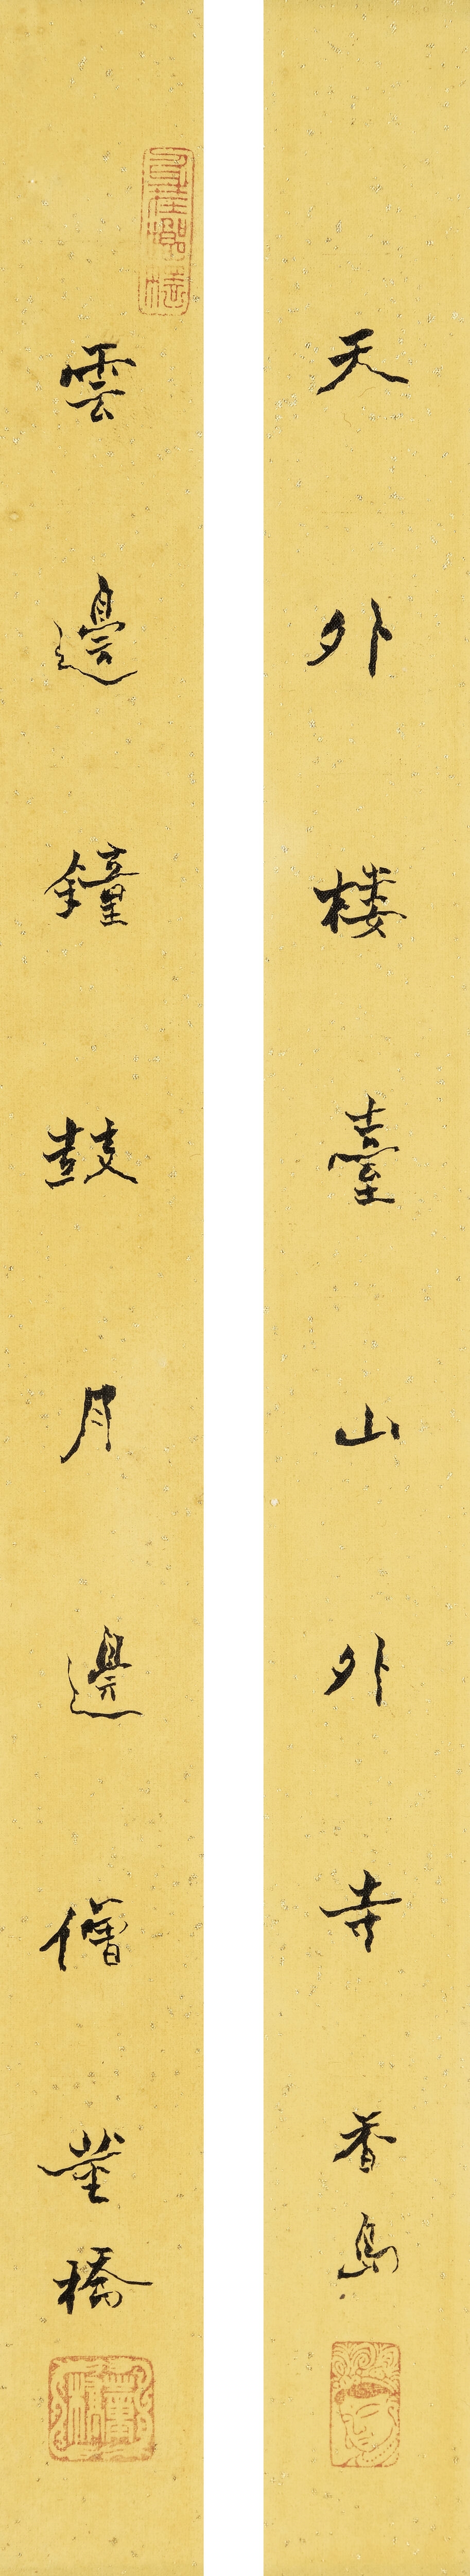 天外楼臺山外寺 香島
雲邊鐘鼓月邊僧 董橋
董橋